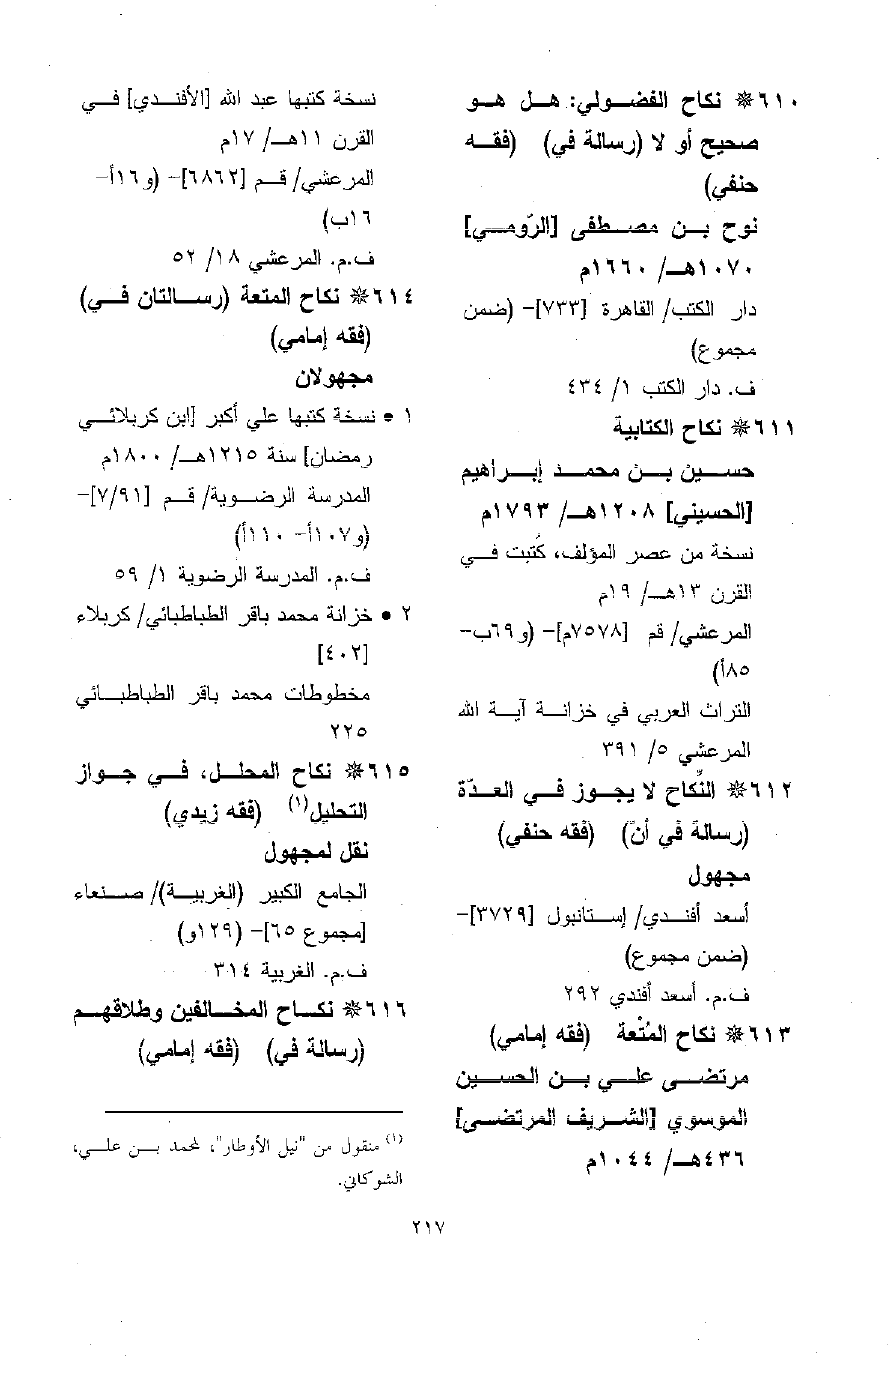 ٦١٠ ❋ نكاح الفضولي: هل هو
صحيح أو لا (رسالة في) (فقه
حنفي)
نوح بن مصطفى [الرّومي]
١٠٧٠هـ/ ١٦٦٠م
دار الكتب/ القاهرة [٧٣٣]- (ضمن
مجموع)
ف. دار الكتب ١/ ٤٣٤
٦١١ ❋ نكاح الكتابية
حسين بن محمد إبراهيم
[الحسيني] ١٢٠٨هـ/ ١٧٩٣م
نسخة من عصر المؤلف، كُتبت في
القرن ١٣هـ/ ١٩م
المرعشي/ قم [٧٥٧٨م]- (و٦٩ب-
٨٥أ)
التراث العربي في خزانة آية الله
المرعشي ٥/ ٣٩١
٦١٢ ❋ النّكاح لا يجوز في العدّة
(رسالة في أن) (فقه حنفي)
مجهول
أسعد أفندي/ إستانبول [٣٧٢٩]-
(ضمن مجموع)
ف.م. أسعد أفندي ٢٩٢
٦١٣ ❋ نكاح المُتْعة (فقه إمامي)
مرتضى علي بن الحسين
الموسوي [الشريف المرتضى]
٤٣٦هـ/ ١٠٤٤م
نسخة كتبها عبد الله [الأفندي] في
القرن ١١هـ/ ١٧م
المرعشي/ قم [٦٨٦٢]- (و١٦أ-
١٦ب)
ف.م. المرعشي ١٨/ ٥٢
٦١٤ ❋ نكاح المتعة (رسالتان في)
(فقه إمامي)
مجهولان
١ • نسخة كتبها علي أكبر [ابن كربلائي
رمضان] سنة ١٢١٥هـ/ ١٨٠٠م
المدرسة الرضوية/ قم [٧/٩١]-
(و١٠٧أ- ١١٠أ)
ف.م. المدرسة الرضوية ١/ ٥٩
٢ • خزانة محمد باقر الطباطبائي/ كربلاء
[٤٠٢]
مخطوطات محمد باقر الطباطبائي
٢٢٥
٦١٥ ❋ نكاح المحلل، في جواز
التحليل(١) (فقه زيدي)
نقل لمجهول
الجامع الكبير (الغربية)/ صنعاء
[مجموع ٦٥]- (١٢٩و)
ف.م. الغربية ٣١٤
٦١٦ ❋ نكاح المخالفين وطلاقهم
(رسالة في) (فقه إمامي)
(١) منقول من "نيل الأوطار"، لمحمد بن علي،
الشوكاني.
٢١٧